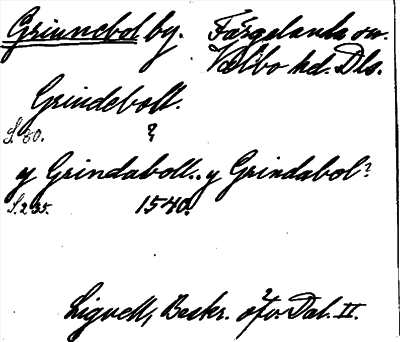 Grinnebol by. Färgelanda sn.
Valbo hd. Dls.
Grindeboll.
S. 30. ?
y Grindaboll. y Grindabol?
S. 235. 1540.
Lignell, Beskr. öfv. Dal. II.